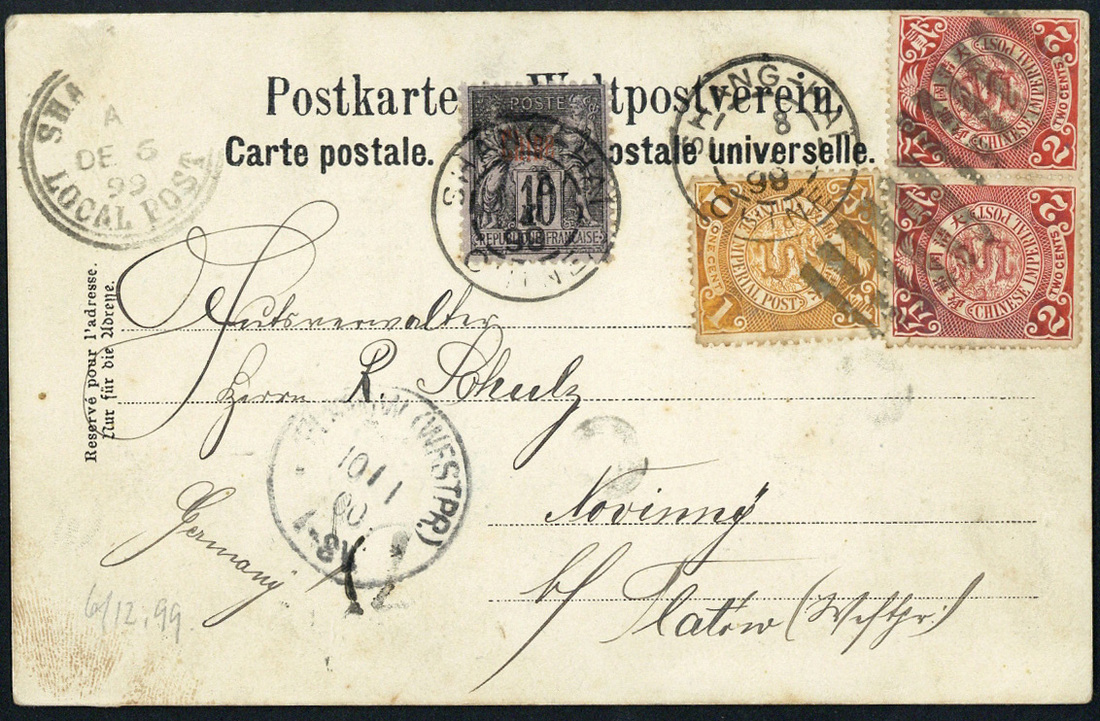 Postkarte
Carte postale. postale universelle.
SHA
A
DE 5
99
LOCAL POST
POSTE
10
REPUBLIQUE FRANÇAISE
SHANG-HAI
CHINE
SHANG-HAI
8
99
CHINE
ONE CENT
IMPERIAL POST
1
2
TWO CENTS
CHINESE IMPERIAL POST
貳
2
TWO CENTS
CHINESE IMPERIAL POST
2
Reservé pour l'adresse.
Nur für die Adresse.
Gutsverwalter
Herrn R. Schulz
(WESTPR)
10/1
00
Novinny
Germany
b/ Flatow (Westpr.)
6/12.99